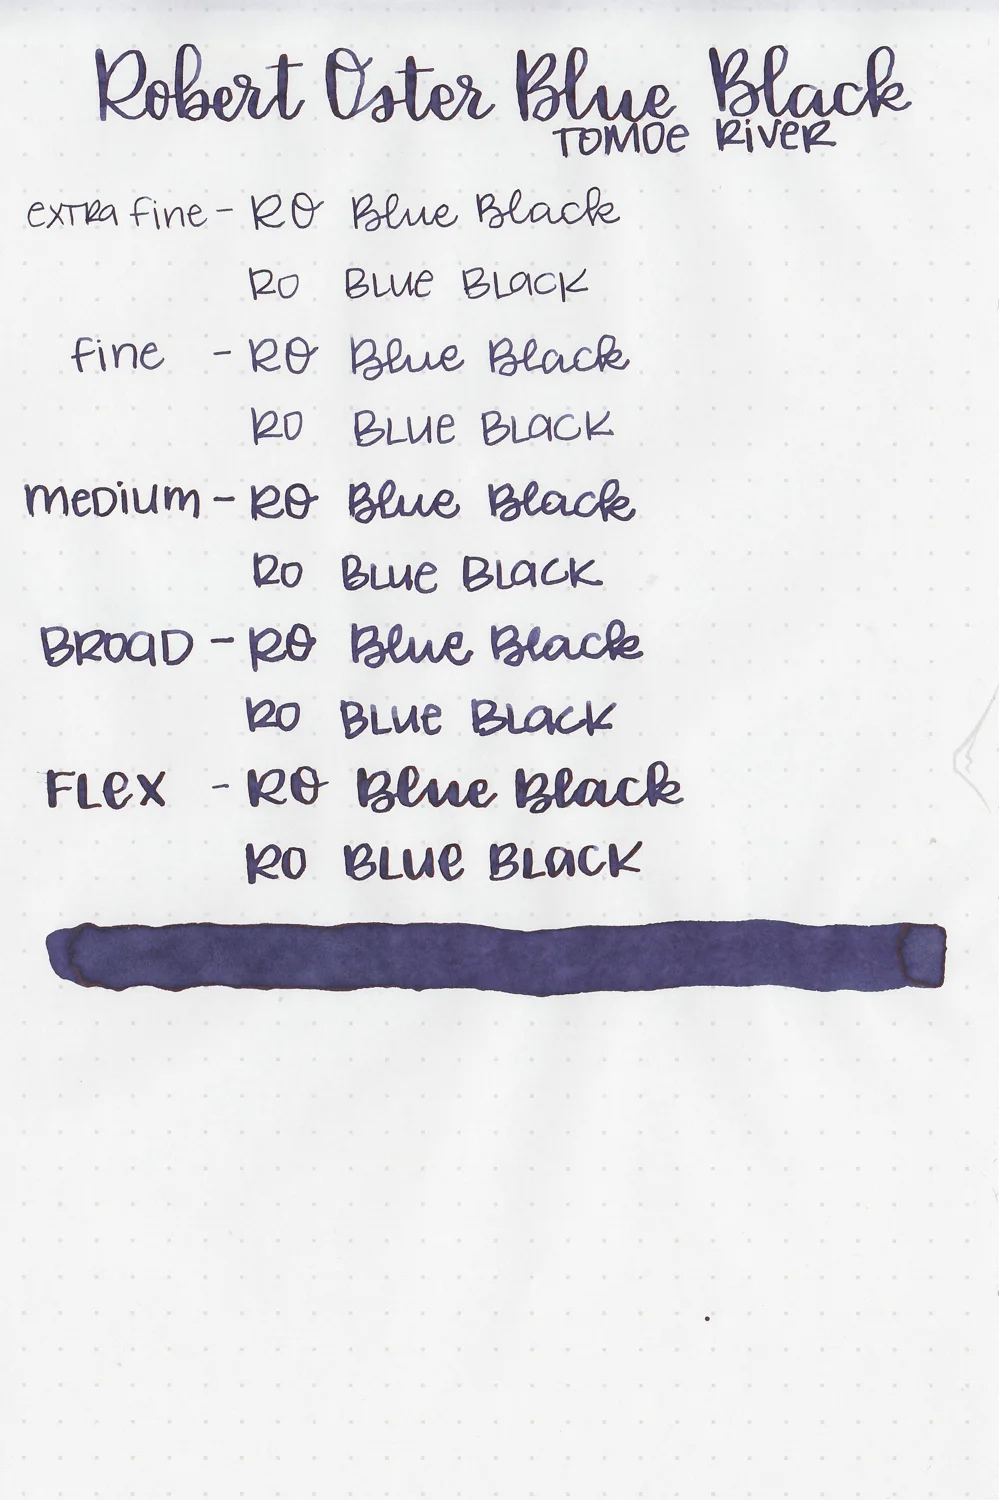 Robert Oster Blue Black
TOMOe RiveR
exTRa fine - RO Blue Black
RO BLUe BLaCK
fine - RO Blue Black
RO BLUe BLaCK
meDium - RO Blue Black
RO BLUe BLaCK
BROaD - RO Blue Black
RO BLUe BLaCK
FLex - RO Blue Black
RO BLUe BLaCK